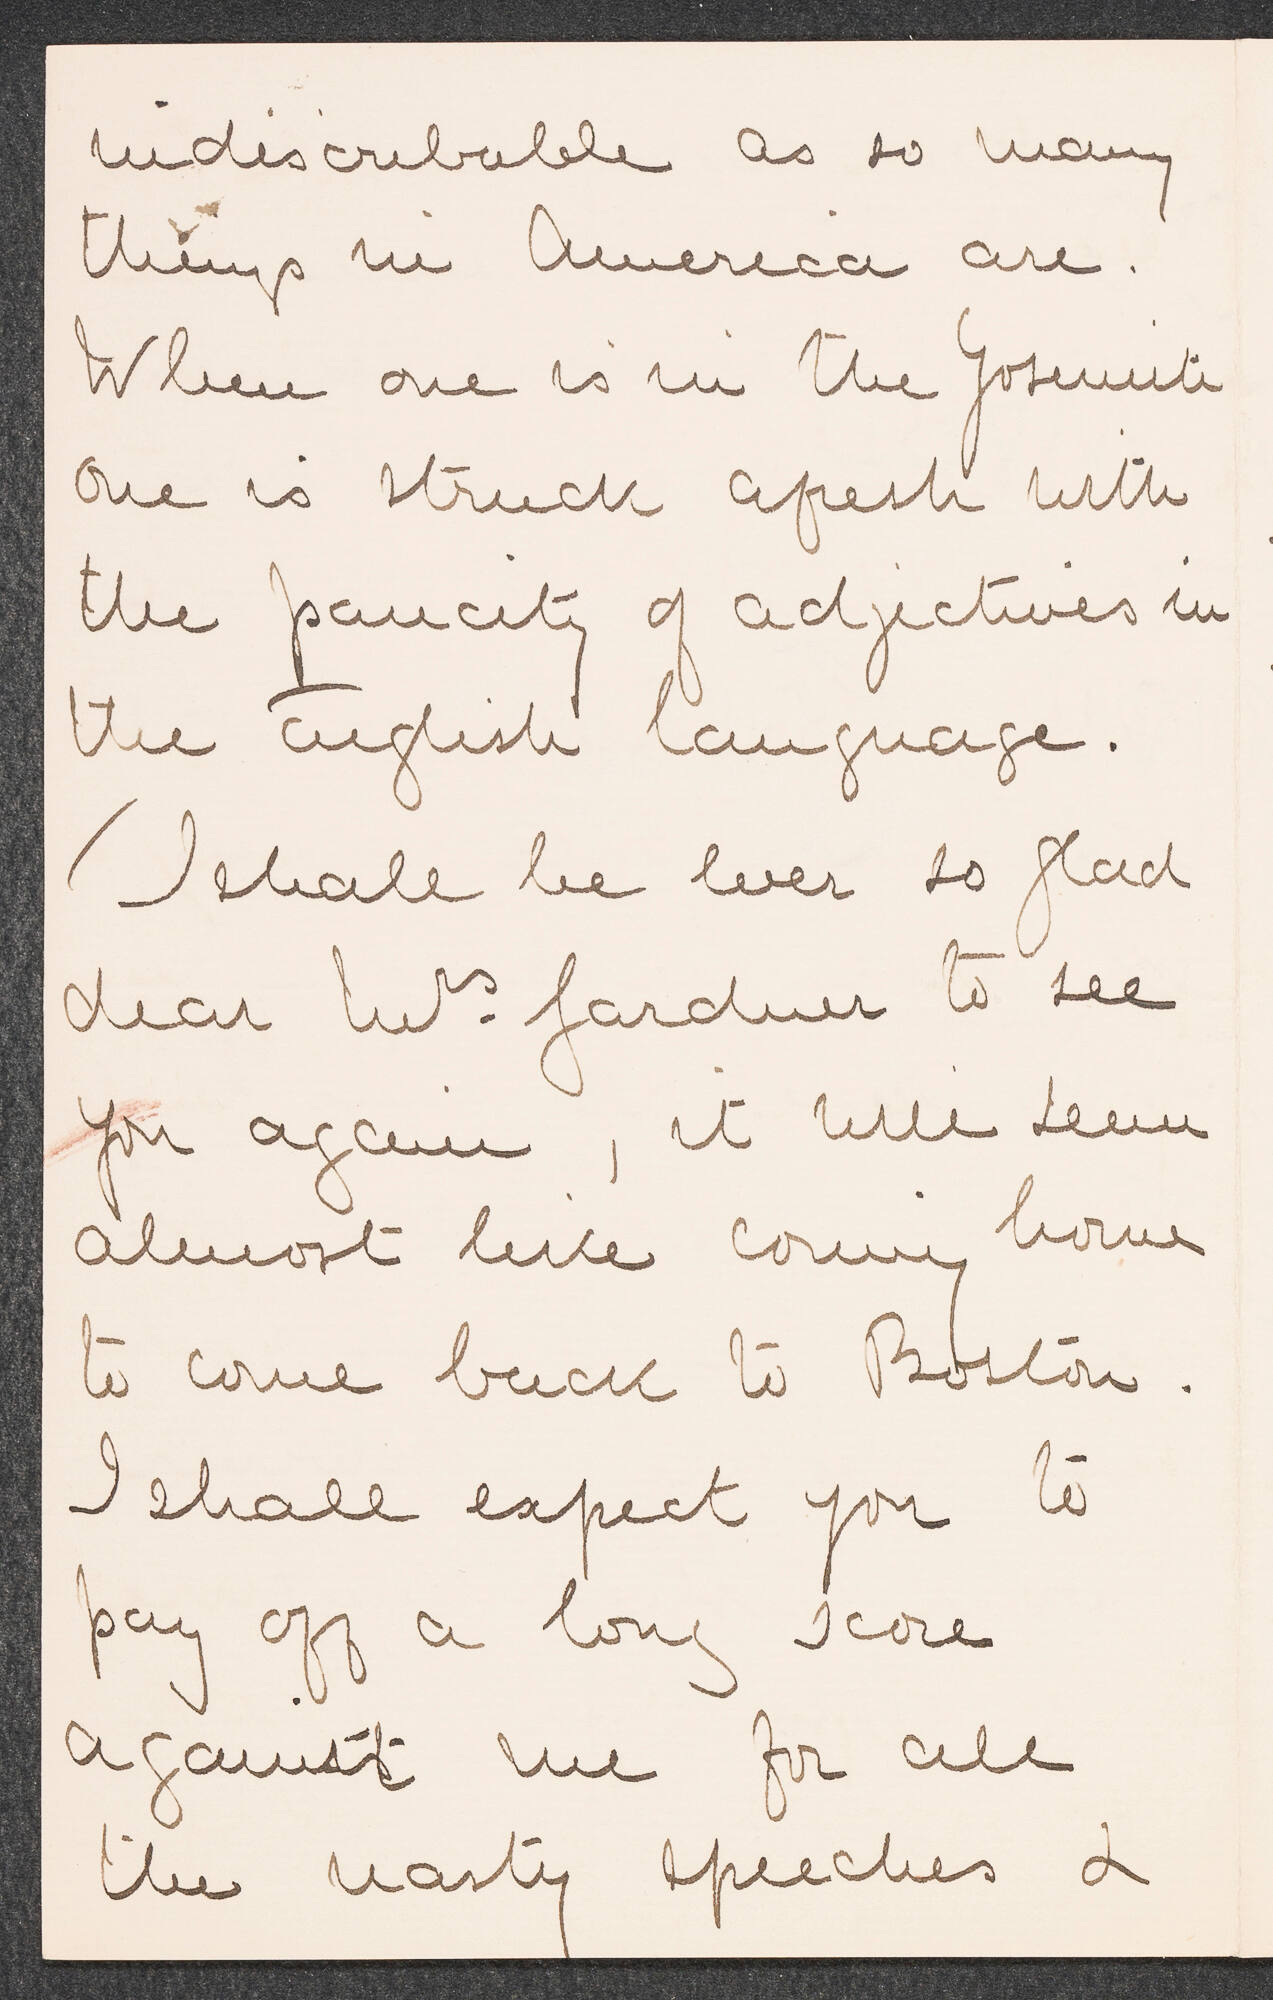 indiscribable as so many
things in America are.
When one is in the Yosemite
one is struck afresh with
the paucity of adjectives in
the English language.
(I shall be ever so glad
dear Mrs. Gardner to see
you again, it will seem
almost like coming home
to come back to Boston.
I shall expect you to
pay off a long score
against me for all
the nasty speeches &